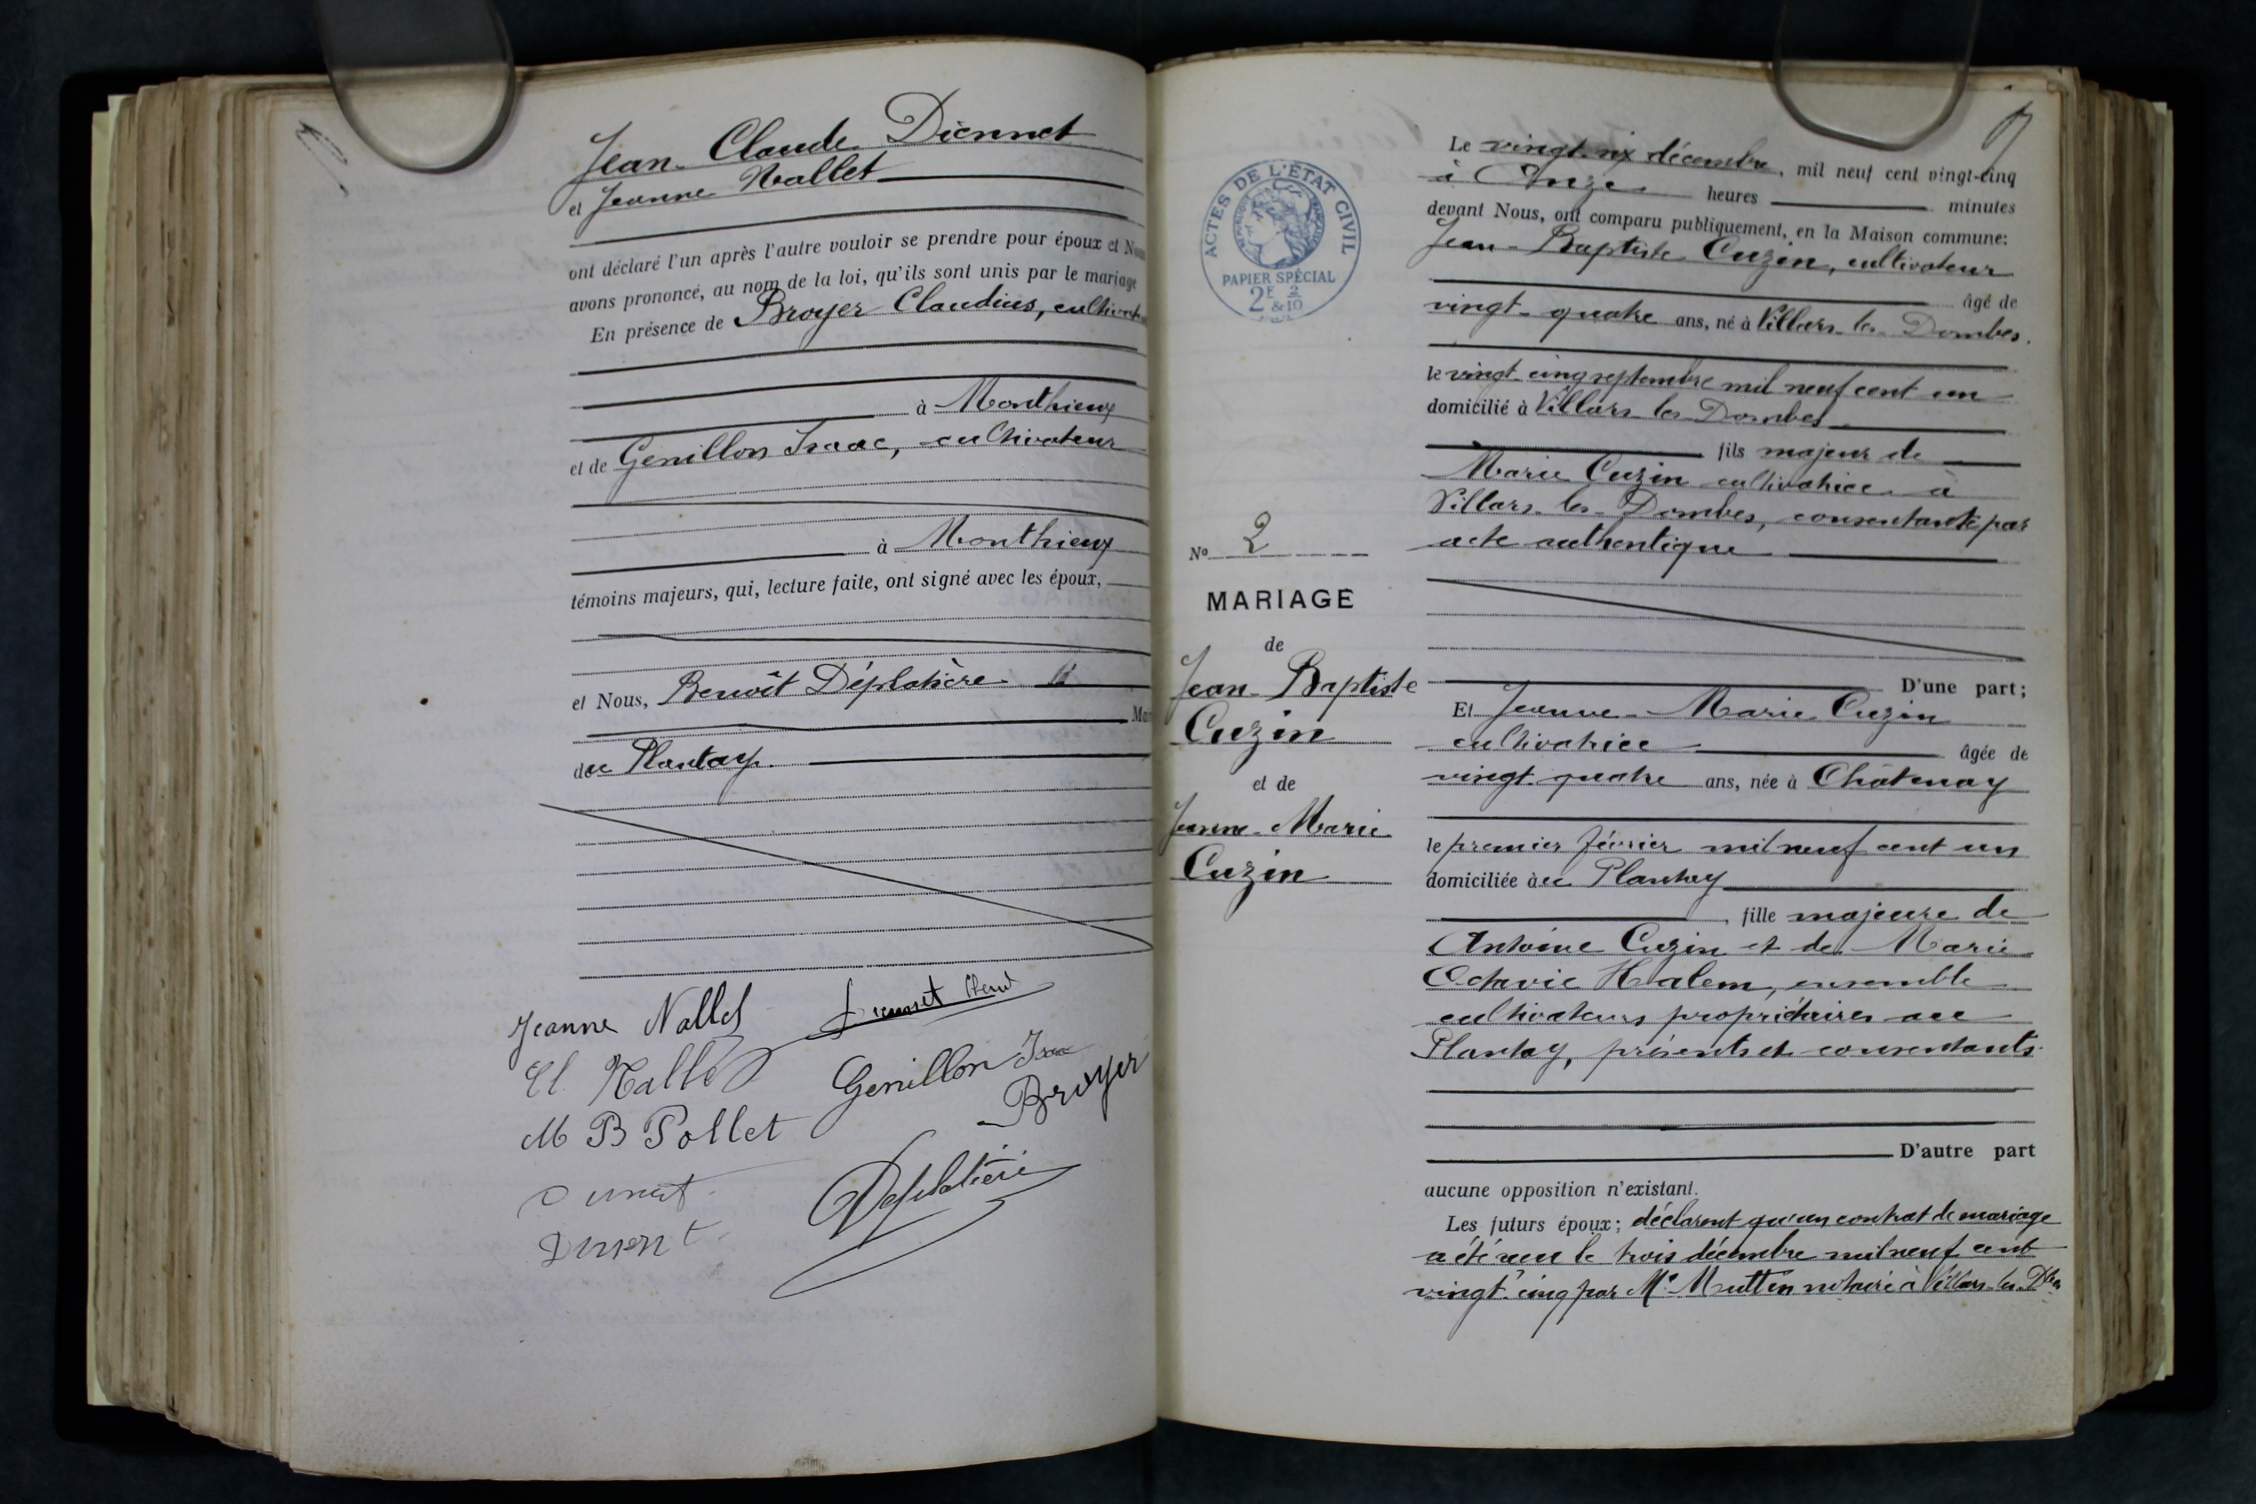 Jean-Claude Diennet
et Jeanne Nallet
ont déclaré l'un après l'autre vouloir se prendre pour époux et Nous
avons prononcé, au nom de la loi, qu'ils sont unis par le mariage
En présence de Broyer Claudius, cultivateur
à Monthieux
et de Genillon Isaac, cultivateur
à Monthieux
témoins majeurs, qui, lecture faite, ont signé avec les époux,
et Nous, Benoît Déplatière
Mai
du Plantay.
Jeanne Nallet
Cl. Nallet
Genillon Isaac
M B Pollet
Broyer
Deplatière
ACTES DE L'ÉTAT CIVIL
PAPIER SPÉCIAL
2F & 2/10
Nº 2
MARIAGE
de
Jean-Baptiste
Cuzin
et de
Jeanne-Marie
Cuzin
Le vingt-six décembre, mil neuf cent vingt-cinq
à Onze heures minutes
devant Nous, ont comparu publiquement, en la Maison commune:
Jean-Baptiste Cuzin, cultivateur
âgé de
vingt-quatre ans, né à Villars-les-Dombes.
le vingt cinq septembre mil neuf cent un
domicilié à Villars les Dombes
fils majeur de
Marie Cuzin cultivatrice à
Villars-les-Dombes, consentante par
acte authentique
D'une part;
Et Jeanne-Marie Cuzin
cultivatrice âgée de
vingt-quatre ans, née à Châtenay
le premier février mil neuf cent un
domiciliée au Plantay
fille majeure de
Antoine Cuzin et de Marie
Octavie Halem, ensemble
cultivateurs propriétaires au
Plantay, présents et consentants.
D'autre part
aucune opposition n'existant.
Les futurs époux; déclarent qu'un contrat de mariage
a été reçu le trois décembre mil neuf cent
vingt-cinq par Me Muttin notaire à Villars-les-Dbes